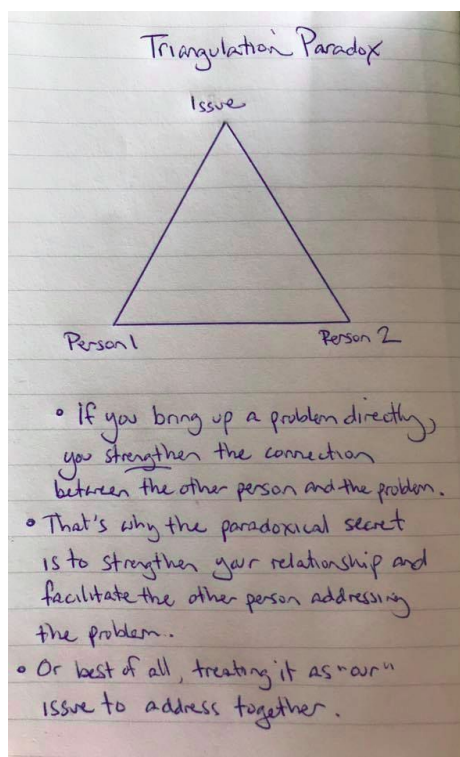 Triangulation Paradox
Issue
Person 1
Person 2
• If you bring up a problem directly,
you strengthen the connection
between the other person and the problem.
• That's why the paradoxical secret
is to strengthen your relationship and
facilitate the other person addressing
the problem..
• Or best of all, treating it as "our"
issue to address together.